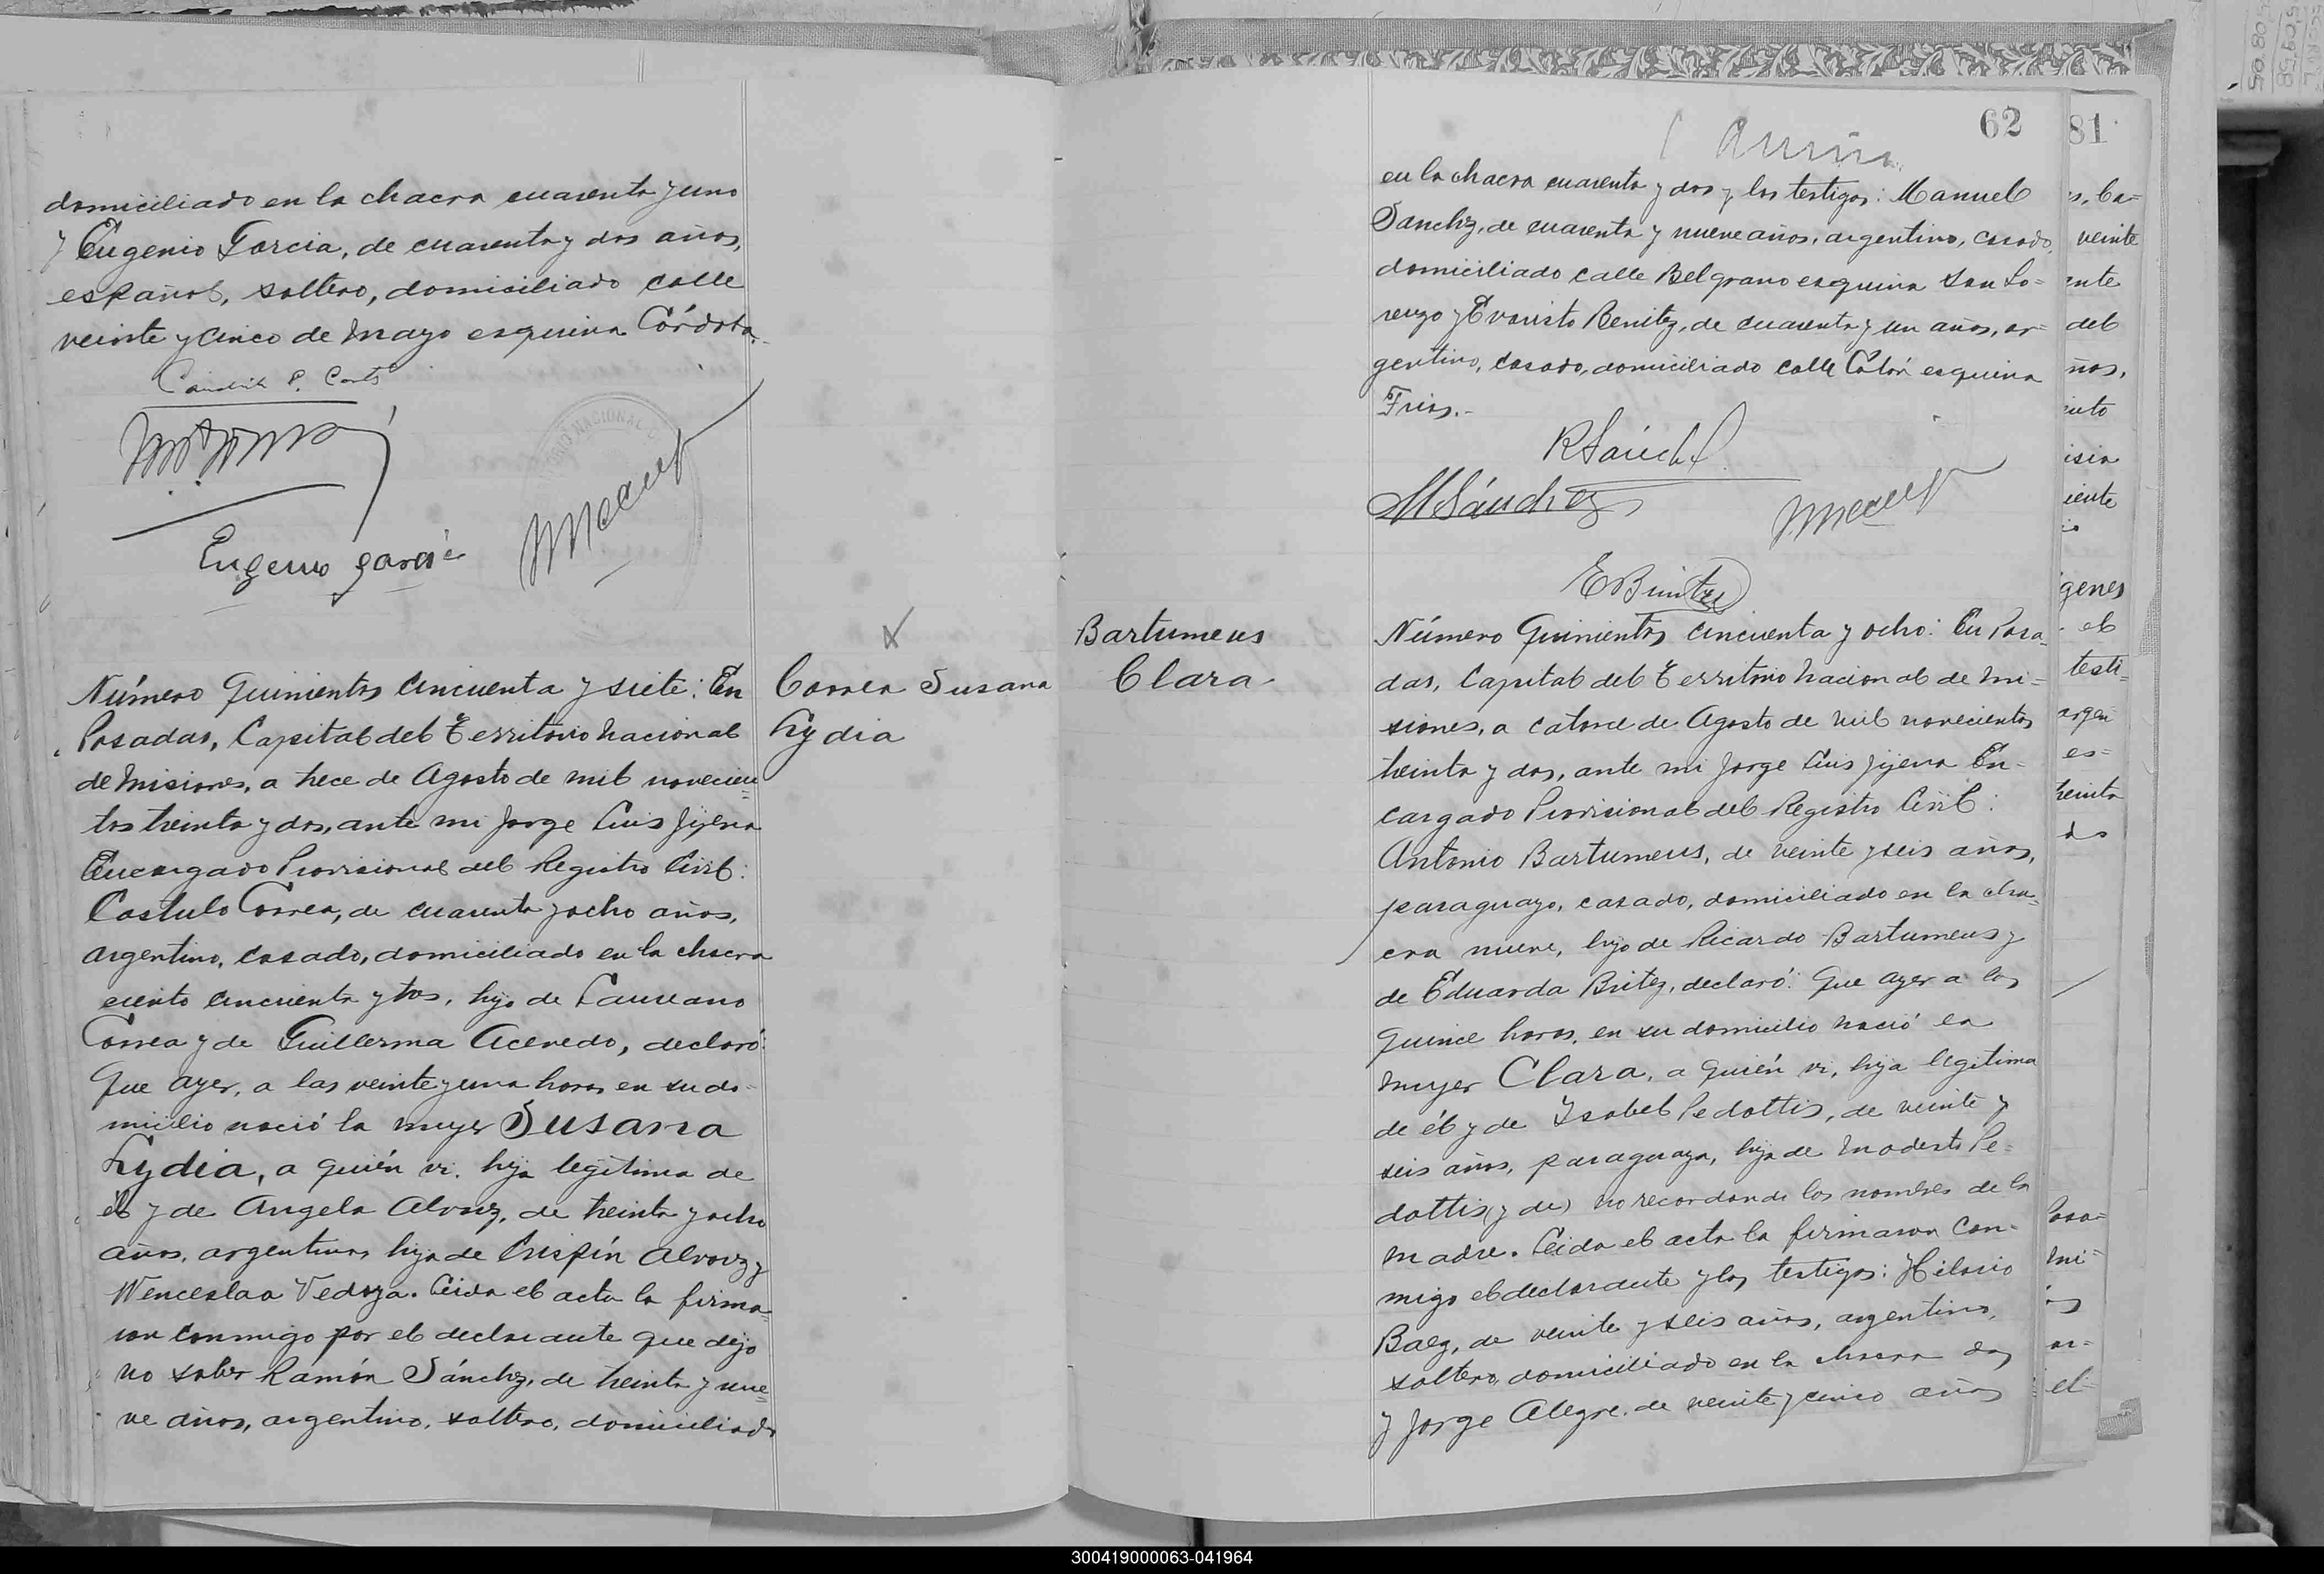 domiciliado en la chacra cuarenta y uno
y Eugenio Garcia, de cuarenta y dos años,
español, soltero, domiciliado calle
veinte y cinco de Mayo esquina Córdoba.
Eugenio Garcia
Número Quinientos cincuenta y siete: En
Posadas, Capital del Territorio Nacional
de Misiones, a trece de Agosto de mil novecien=
tos treinta y dos, ante mi Jorge Luis Jijena
Encargado Provisional del Registro Civil:
Castulo Correa, de cuarenta y ocho años,
argentino, casado, domiciliado en la chacra
ciento cincuenta y tres, hijo de Laureano
Correa y de Guillerma Acevedo, declaró:
Que ayer, a las veinte y una horas en su do-
micilio nació la mujer Susana
Lydia, a quién vi. hija legítima de
él y de Angela Alvarez, de treinta y ocho
años, argentina, hija de Crispín Alvarez y
Wenceslaa Vedoya. Leida el acta la firma=
ron conmigo por el declarante que dijo
no saber Ramón Sánchez, de treinta y nue=
ve años, argentino, soltero, domiciliado
Correa Susana
Lydia
62
en la chacra cuarenta y dos y los testigos: Manuel
Sanchez, de cuarenta y nueve años, argentino, casado,
domiciliado calle Belgrano esquina San Lo=
renzo y Evaristo Benitez, de cuarenta y un años, ar=
gentino, casado, domiciliado calle Colón esquina
Frias.-
R Sánchez
M Sánchez
E Benitez
Bartumeus
Clara
Número Quinientos cincuenta y ocho: En Posa-
das, Capital del Territorio Nacional de Mi=
siones, a catorce de Agosto de mil novecientos
treinta y dos, ante mi Jorge Luis Jijena En-
cargado Provisional del Registro Civil:
Antonio Bartumeus, de veinte y seis años,
paraguayo, casado, domiciliado en la cha=
cra nueve, hijo de Ricardo Bartumeus y
de Eduarda Britez, declaró: Que ayer a las
quince horas, en su domicilio nació la
mujer Clara, a quién vi, hija legítima
de él y de Ysabel Pedottis, de veinte y
seis años, paraguaya, hija de Modesto Pe=
dottis (y de) no recordando los nombres de la
madre. Leida el acta la firmaron con-
migo el declarante y los testigos: Hilario
Baez, de veinte y seis años, argentino,
soltero, domiciliado en la chacra dos
y Jorge Alegre, de veinte y cinco años
81
veinte
ente
del
ños,
ento
iente
genes
el
testi=
argen
es=
treinta
Posa=
Mi=
ar=
el
300419000063-041964